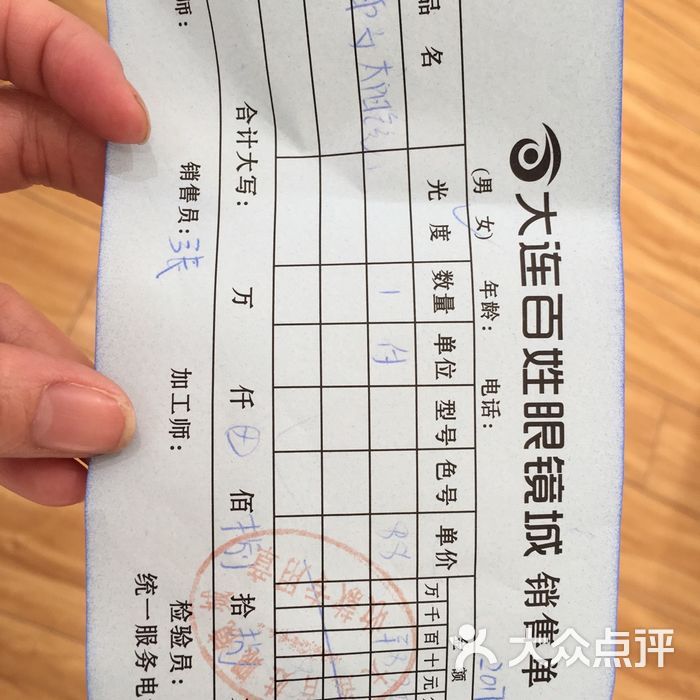 大连百姓眼镜城 销售单
2017
(男 女) 年龄： 电话：
品名 光度 数量 单位 型号 色号 单价 额
万千百十元
太阳镜 1 付 88
合计大写： 万 仟 佰 捌 拾 捌
师： 销售员：张 加工师： 检验员：
统一服务电
大众点评